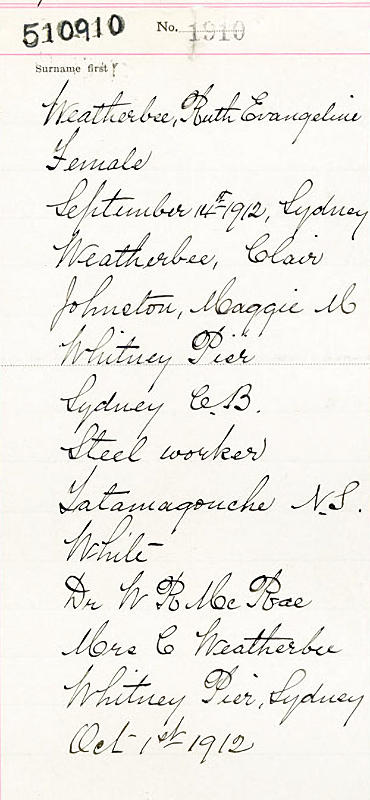 510910 No. 1910
Surname first
Weatherbee, Ruth Evangeline
Female
September 14th 1912, Sydney
Weatherbee, Clair
Johnston, Maggie M
Whitney Pier
Sydney C.B.
Steel worker
Tatamagouche N.S.
White
Dr W R Mc Rae
Mrs C Weatherbee
Whitney Pier, Sydney
Oct 1st 1912